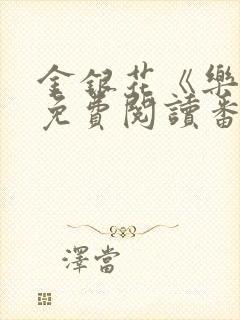 金銀花《樂
免費閱讀番
澤當